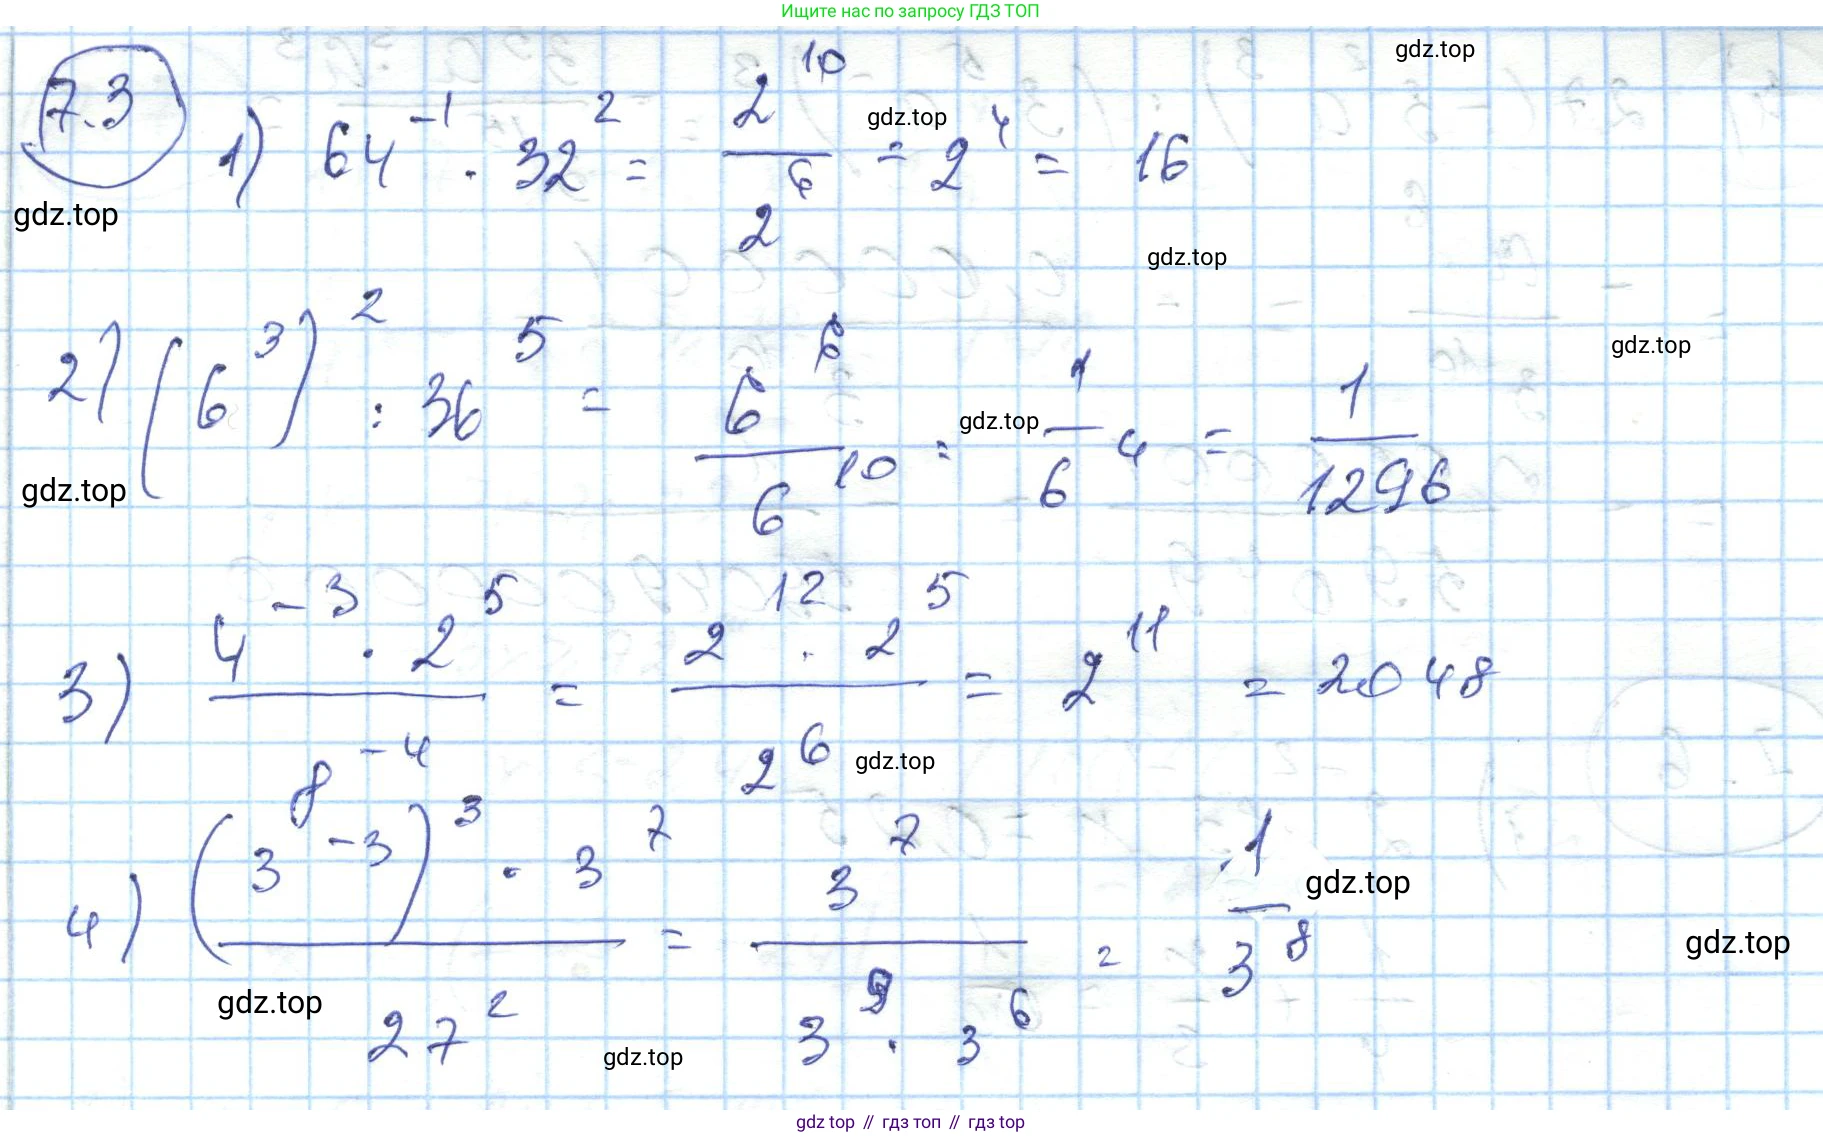 Ищите нас по запросу ГДЗ ТОП
gdz.top
7.3
1) 64^-1 · 32^2 = 2^10 / 2^6 = 2^4 = 16
gdz.top
gdz.top
gdz.top
2) (6^3)^2 : 36^5 = 6^6 / 6^10 = 1 / 6^4 = 1 / 1296
gdz.top
gdz.top
gdz.top
3) 4^-3 · 2^5 / 8^-4 = 2^12 · 2^5 / 2^6 = 2^11 = 2048
gdz.top
4) (3^-3)^3 · 3^7 / 27^2 = 3^7 / 3^9 · 3^6 = 1 / 3^8
gdz.top
gdz.top
gdz.top
gdz.top
gdz top // гдз топ // gdz top